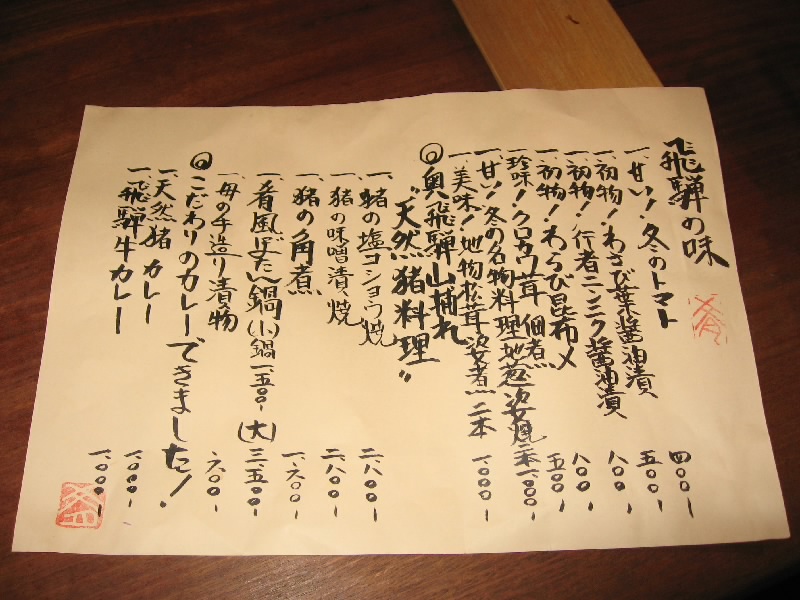 飛騨の味
一、甘い！冬のトマト 四〇〇-
一、初物！わさび葉醤油漬 五〇〇-
一、初物！行者ニンニク醤油漬 八〇〇-
一、初物！わらび昆布〆 八〇〇-
一、珍味！クロカワ茸 佃煮 五〇〇-
一、甘い！冬の名物料理地葱姿焼二本 一、〇〇〇-
一、美味！地物松茸姿煮 二本 一、〇〇〇-
◎奥飛騨山捕れ
“天然猪料理”
一、猪の塩コショウ焼 二、八〇〇-
一、猪の味噌漬焼 二、八〇〇-
一、猪の角煮 一、六〇〇-
一、肴風ぼたん鍋(小)鍋一、五〇〇- (大)三、五〇〇-
一、母の手造り漬物 六〇〇-
◎こだわりのカレーできました！
一、天然猪カレー 一、〇〇〇-
一、飛騨牛カレー 一、〇〇〇-